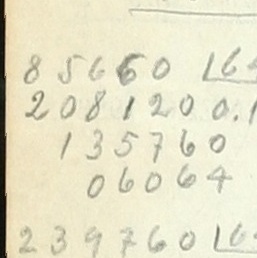 85660 64
208120 0.1
135760
06064
239760 6